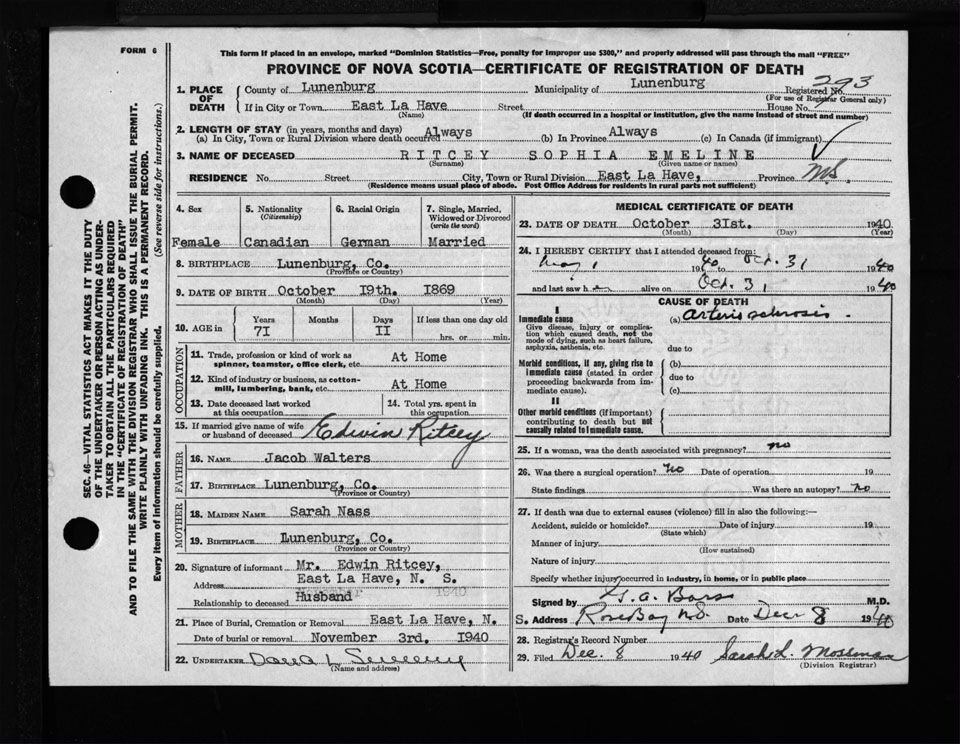 FORM 6
This form if placed in an envelope, marked "Dominion Statistics—Free, penalty for improper use $300," and properly addressed will pass through the mail "FREE"
PROVINCE OF NOVA SCOTIA—CERTIFICATE OF REGISTRATION OF DEATH
1. PLACE OF DEATH
County of Lunenburg Municipality of Lunenburg Registered No. 293
(For use of Registrar General only)
If in City or Town East La Have Street House No.
(Name) (If death occurred in a hospital or institution, give the name instead of street and number)
2. LENGTH OF STAY (in years, months and days)
(a) In City, Town or Rural Division where death occurred Always (b) In Province Always (c) In Canada (if immigrant)
3. NAME OF DECEASED RITCEY SOPHIA EMELINE
(Surname) (Given name or names)
RESIDENCE No. Street City, Town or Rural Division East La Have, Province N.S.
(Residence means usual place of abode. Post Office Address for residents in rural parts not sufficient)
4. Sex 5. Nationality (Citizenship) 6. Racial Origin 7. Single, Married, Widowed or Divorced (write the word)
Female Canadian German Married
8. BIRTHPLACE Lunenburg, Co.
(Province or Country)
9. DATE OF BIRTH October I9th. I869
(Month) (Day) (Year)
10. AGE in Years Months Days If less than one day old
7I II hrs. or min.
OCCUPATION
11. Trade, profession or kind of work as spinner, teamster, office clerk, etc. At Home
12. Kind of industry or business, as cotton-mill, lumbering, bank, etc. At Home
13. Date deceased last worked at this occupation 14. Total yrs. spent in this occupation
15. If married give name of wife or husband of deceased Edwin Ritcey
FATHER
16. NAME Jacob Walters
17. BIRTHPLACE Lunenburg, Co.
(Province or Country)
MOTHER
18. MAIDEN NAME Sarah Nass
19. BIRTHPLACE Lunenburg, Co.
(Province or Country)
20. Signature of informant Mr. Edwin Ritcey,
Address East La Have, N. S.
Relationship to deceased Husband
21. Place of Burial, Cremation or Removal East La Have, N. S.
Date of burial or removal November 3rd. I940
22. UNDERTAKER
(Name and address)
MEDICAL CERTIFICATE OF DEATH
23. DATE OF DEATH October 3Ist. 1940
(Month) (Day) (Year)
24. I HEREBY CERTIFY that I attended deceased from:
May 1 1940 to Oct. 31 1940
and last saw her alive on Oct. 31 1940
CAUSE OF DEATH
I
Immediate cause (a) Arterio sclerosis.
Give disease, injury or complication which caused death, not the mode of dying, such as heart failure, asphyxia, asthenia, etc.
due to
Morbid conditions, if any, giving rise to immediate cause (stated in order proceeding backwards from immediate cause).
(b)
due to
(c)
II
Other morbid conditions (if important) contributing to death but not causally related to immediate cause.
25. If a woman, was the death associated with pregnancy? no
26. Was there a surgical operation? no Date of operation 19
State findings Was there an autopsy? no
27. If death was due to external causes (violence) fill in also the following:—
Accident, suicide or homicide? Date of injury 19
(State which)
Manner of injury
(How sustained)
Nature of injury
Specify whether injury occurred in industry, in home, or in public place
Signed by M.D.
Address Rose Bay N.S. Date Dec 8 1940
28. Registrar's Record Number
29. Filed Dec. 8 1940 Sarah L. Mossman
(Division Registrar)
SEC. 46—VITAL STATISTICS ACT MAKES IT THE DUTY
OF THE UNDERTAKER OR PERSON ACTING AS UNDER-
TAKER TO OBTAIN ALL THE PARTICULARS REQUIRED
IN THE "CERTIFICATE OF REGISTRATION OF DEATH"
AND TO FILE THE SAME WITH THE DIVISION REGISTRAR WHO SHALL ISSUE THE BURIAL PERMIT.
WRITE PLAINLY WITH UNFADING INK. THIS IS A PERMANENT RECORD.
Every item of information should be carefully supplied. (See reverse side for instructions.)